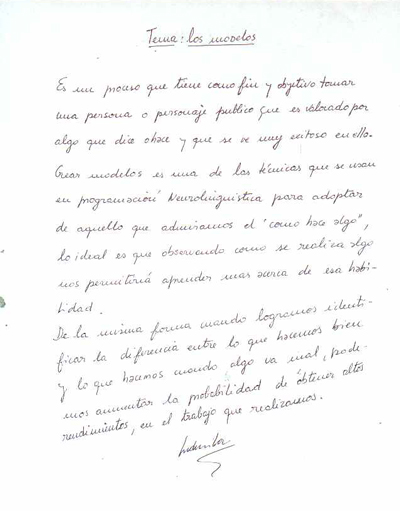 Tema: los modelos
Es un proceso que tiene como fin y objetivo tomar
una persona o personaje publico que es valorado por
algo que dice o hace y que se ve muy exitoso en ello.
Crear modelos es una de las técnicas que se usan
en programación Neurolinguistica para adoptar
de aquello que admiramos el "como hace algo",
lo ideal es que observando como se realiza algo
nos permitiría aprender mas acerca de esa habi-
lidad.
De la misma forma cuando logramos identi-
ficar la diferencia entre lo que hacemos bien
y lo que hacemos cuando algo va mal, pode-
mos aumentar la probabilidad de obtener altos
rendimientos, en el trabajo que realizamos.